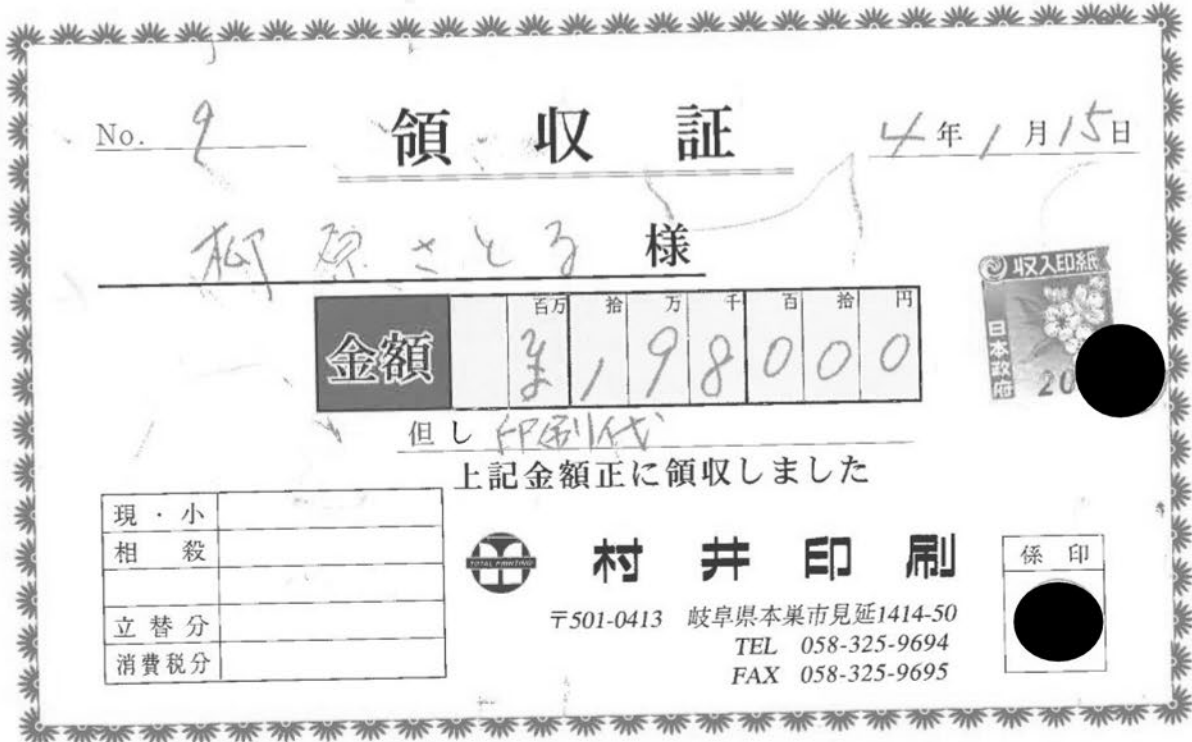 No. 9 領収証 4年1月15日
柳原さとる 様
収入印紙
日本政府
20
金額 百万 拾 万 千 百 拾 円
198000
但し 印刷代
上記金額正に領収しました
現・小
相殺
立替分
消費税分
TOTAL PRINTING
村井印刷
係印
〒501-0413 岐阜県本巣市見延1414-50
TEL 058-325-9694
FAX 058-325-9695